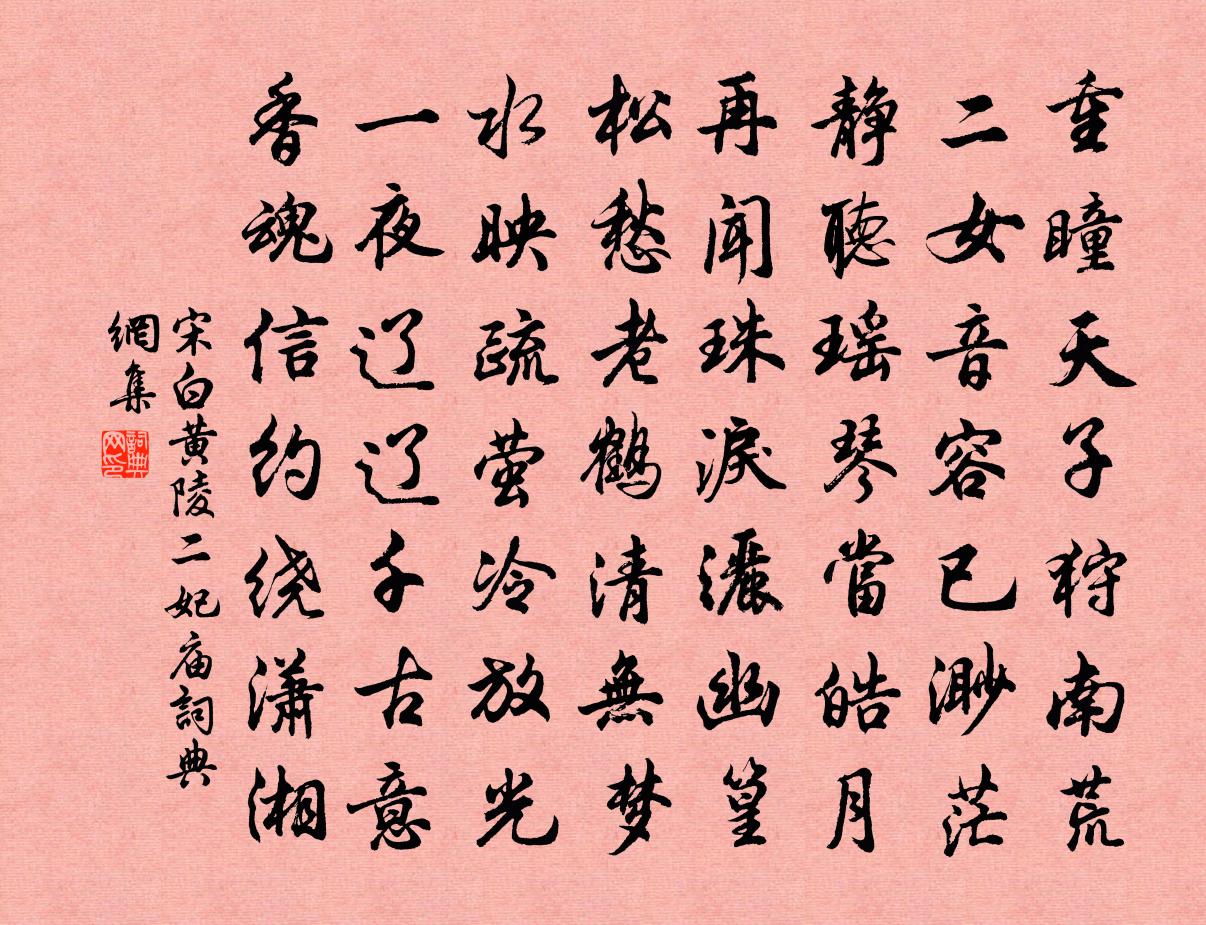 重瞳天子狩南荒
二女音容已渺茫
静聽瑶琴當皓月
再闻珠淚灑幽篁
松愁老鶴清無梦
水映疏萤冷放光
一夜辽辽千古意
香魂信约绕潇湘
宋白黄陵二妃庙詞典
網集
詞典网印